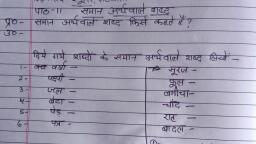 पाठ-11 समान अर्थवाले शब्द
प्र०- समान अर्थवाले शब्द किसे कहते है?
उ०-
दिये गये शब्दों के समान अर्थवाले शब्द लिखें-
1-
2- पक्षी -
3- जल -
4- बेटा -
5- पेड़ -
6-
सूरज -
फूल -
बगीचा -
चाँद -
राह -
बादल -